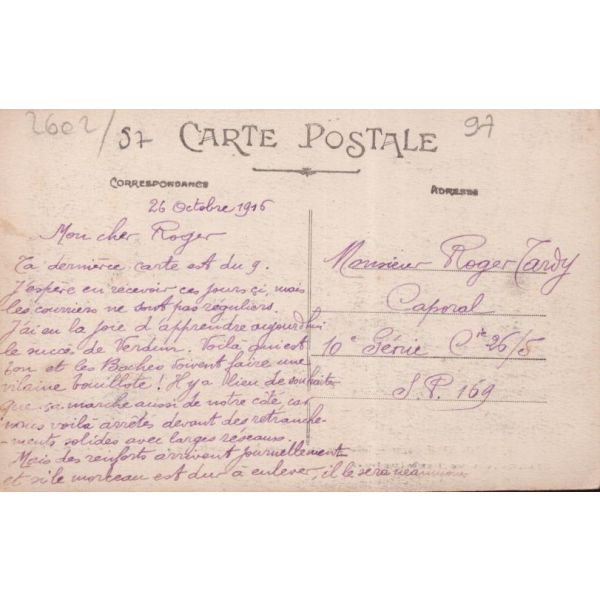 2602/57
97
CARTE POSTALE
CORRESPONDANCE
ADRESSE
26 Octobre 1916
Mon cher Roger
Ta dernière carte est du 9.
J'espère en recevoir ces jours çi, mais
les courriers ne sont pas réguliers.
J'ai eu la joie d'apprendre aujourd'hui
le succès de Verdun. Voilà qui est
bon et les Boches doivent faire une
vilaine bouillote ! Il y a lieu de souhaiter
que ça marche aussi de notre côté car
nous voilà arrêtés devant des retranche-
-ments solides avec larges réseaux.
Mais des renforts arrivent journellement
et si le morceau est dur à enlever, il le sera néanmoins
Monsieur Roger Tardy
Caporal
10e Génie Cie 26/5
S.P. 169